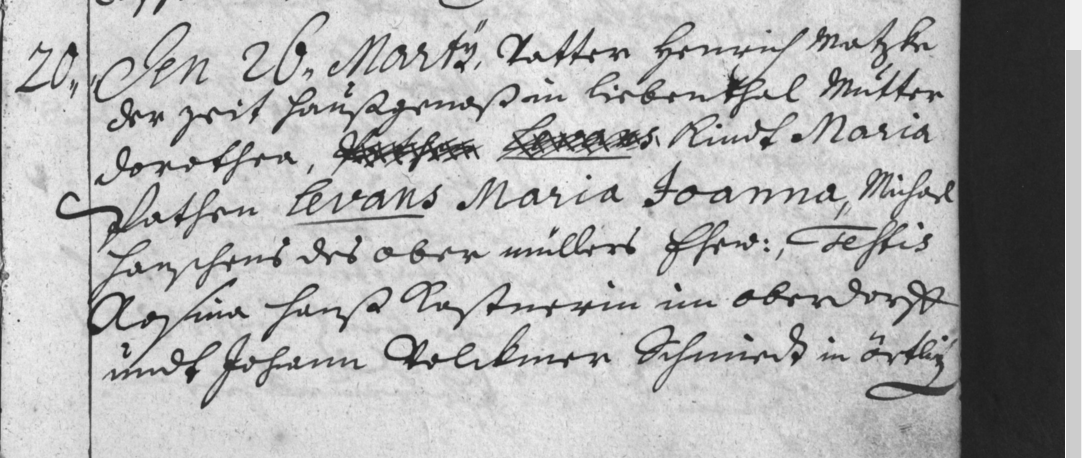 20. Den 26. Martÿ. Vatter Henrich Matzke
der zeit haußgenoß in Liebenthal Mutter
Dorothea, Pathen Levans Kindt Maria
Pathen Levans Maria Joanna, Michael
Hanschens des ober müllers Ehew:, Testis
Rosina Hanß Kastnerin im oberdorff
undt Johann Volckmer Schmiedt in örtliz